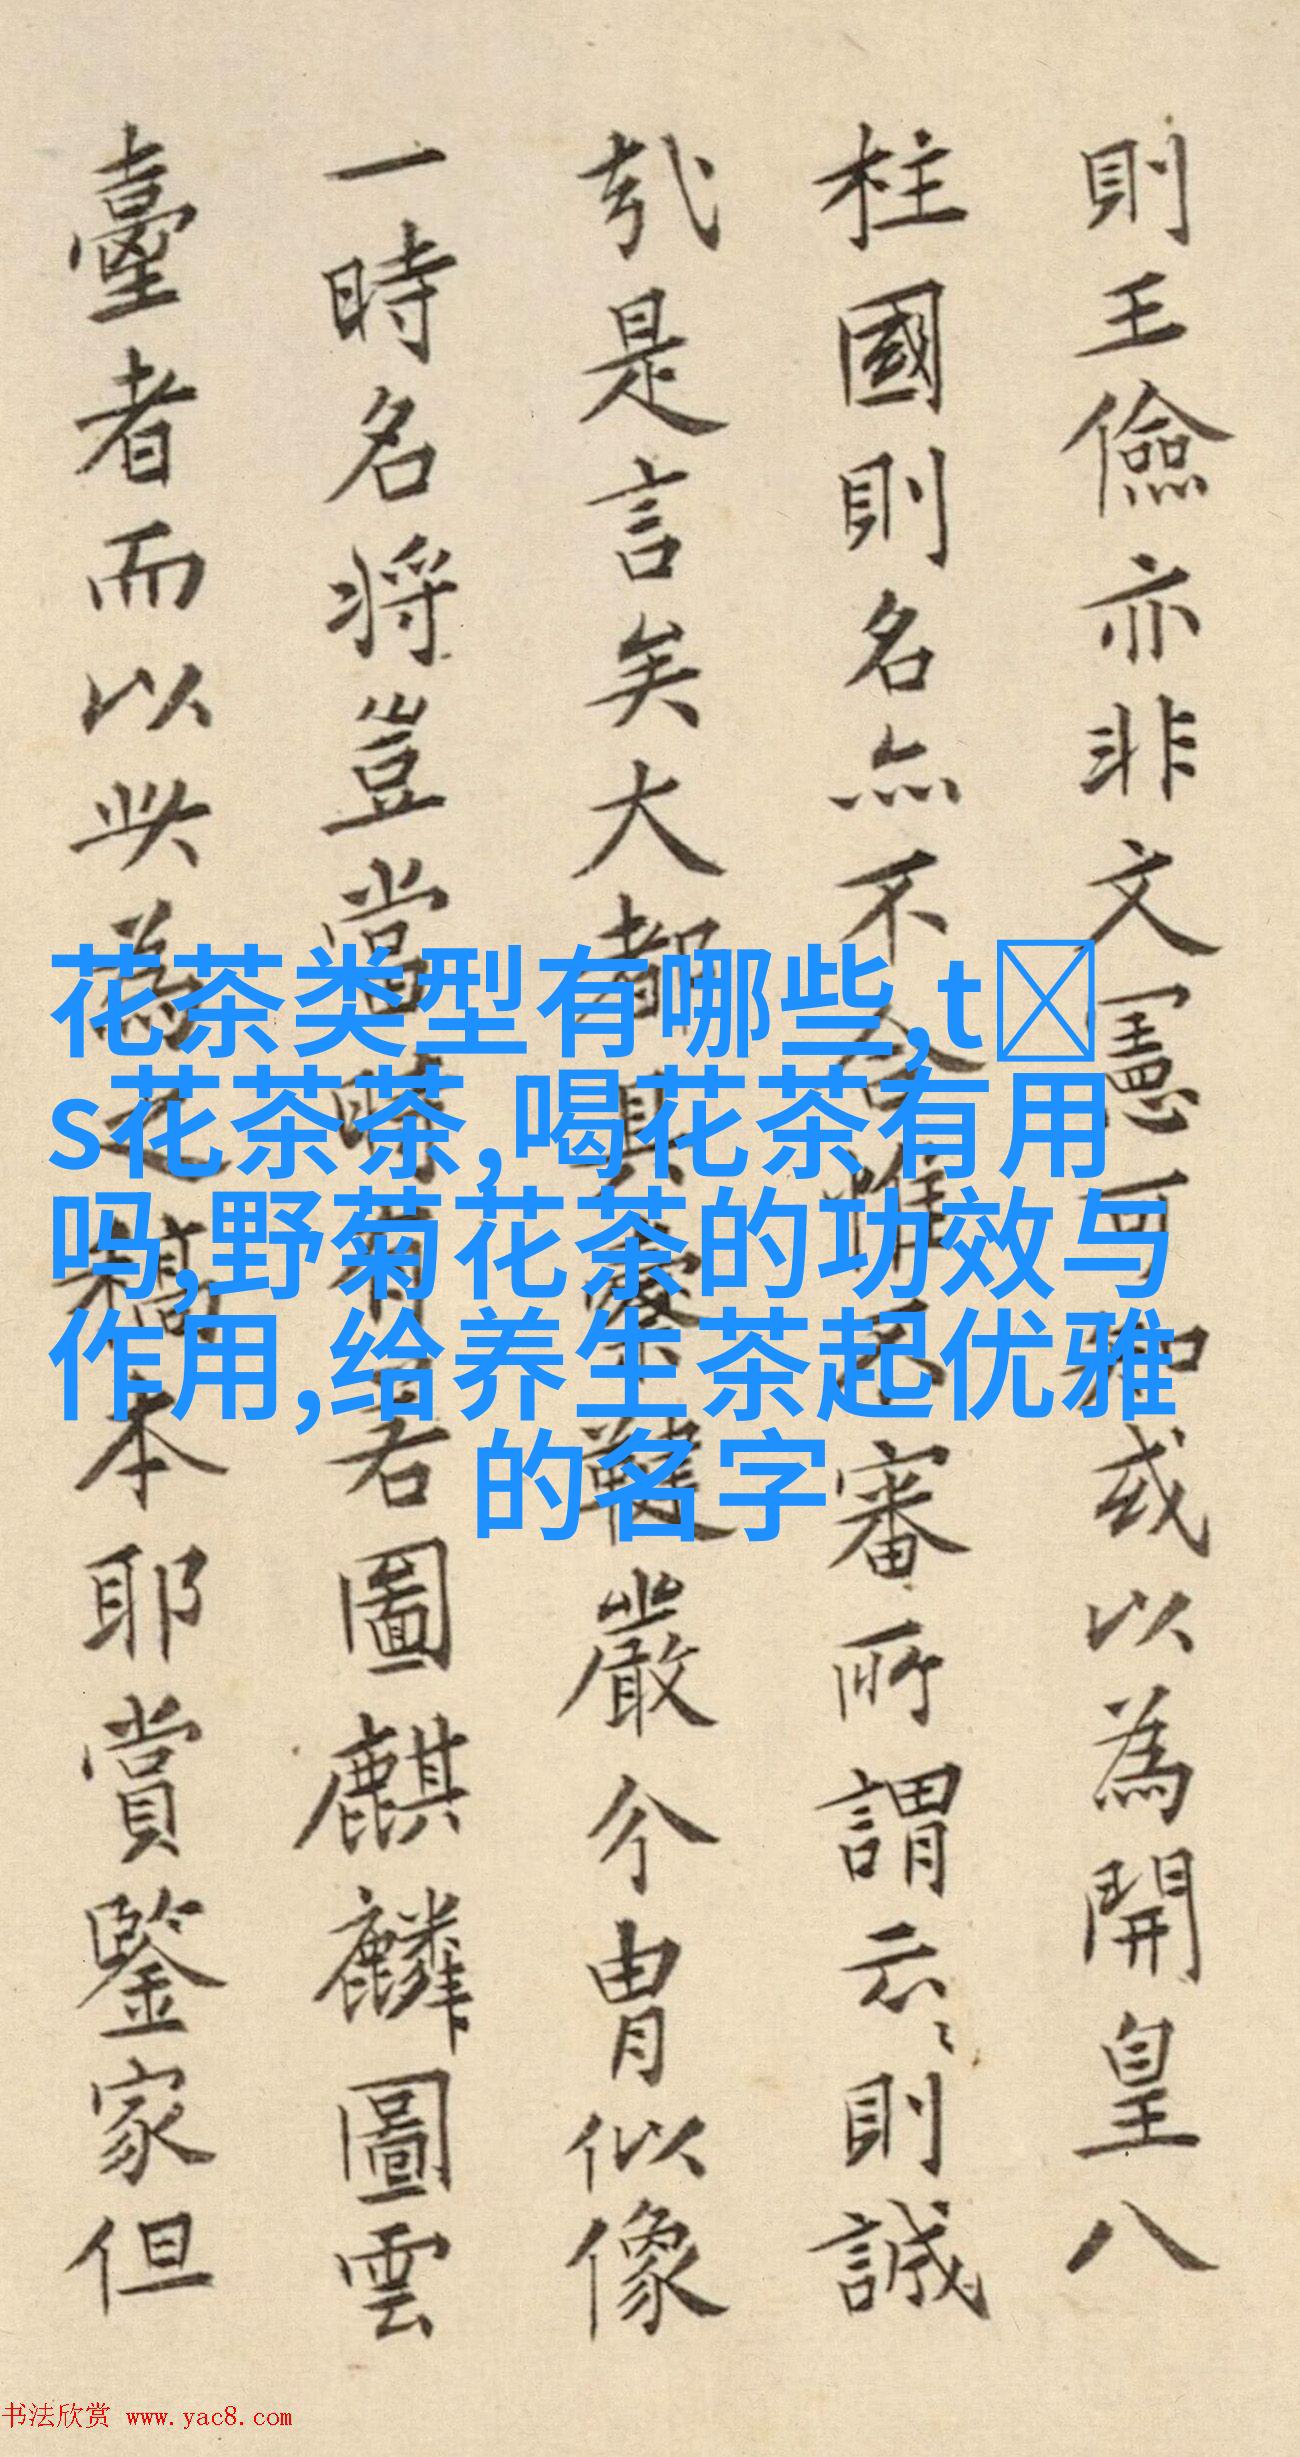 則王儉亦非文憲可知或以為開皇八
柱國則名亦不合惟不審所謂云〻則誠
哉是言矣大都具鞾嚴介胄似像
一時名将豈當時有若圖麒麟圖雲
臺者而以此為之稿本耶賞鑒家但
花茶类型有哪些,t
s花茶茶,喝花茶有用
吗,野菊花茶的功效与
作用,给养生茶起优雅
的名字
书法欣赏 www.yac8.com